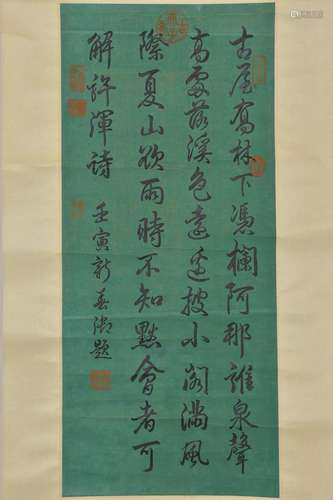 古屋喬林下憑欄阿那誰泉聲
高處落溪色遠邊披小閣滿風
際夏山欲雨時不知默會者可
解許渾詩
壬寅新春御題